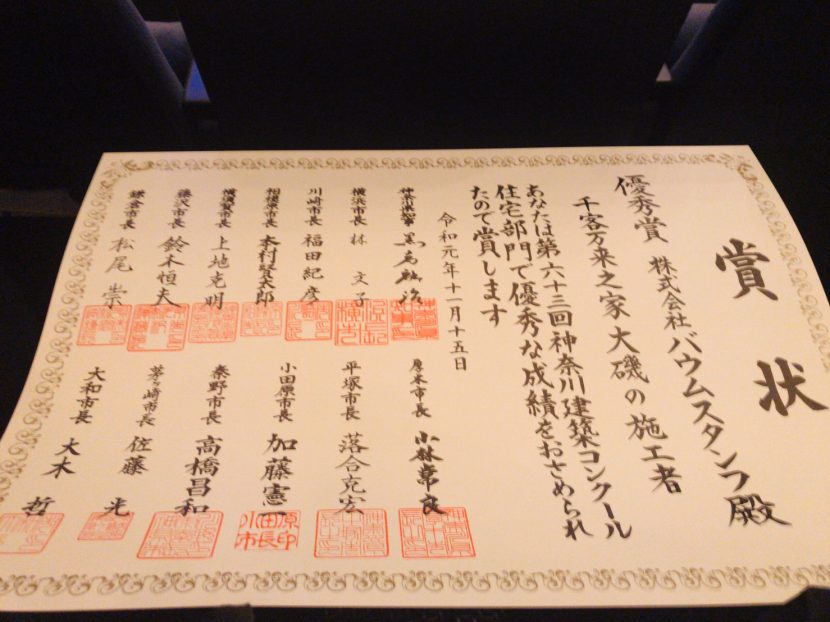 賞状
優秀賞 株式会社バウムスタンフ殿
千客万来之家大磯の施工者
あなたは第六十三回神奈川建築コンクール
住宅部門で優秀な成績をおさめられ
たので賞します
令和元年十一月十五日
神奈川県知事 黒岩祐治
横浜市長 林 文子
川崎市長 福田紀彦
相模原市長 本村賢太郎
横須賀市長 上地克明
藤沢市長 鈴木恒夫
鎌倉市長 松尾 崇
厚木市長 小林常良
平塚市長 落合克宏
小田原市長 加藤憲一
秦野市長 高橋昌和
茅ヶ崎市長 佐藤 光
大和市長 大木 哲